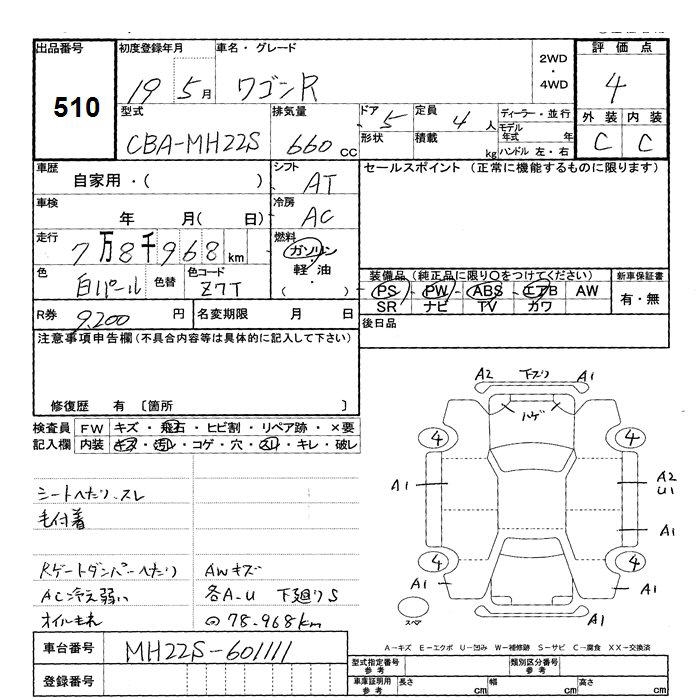 出品番号
510
初度登録年月
19 5月
車名・グレード
ワゴンR
2WD
・
4WD
評価点
4
型式
CBA-MH22S
排気量
660 CC
ドア 5
形状
定員 4 人
積載 kg
ディーラー・並行
モデル年式 年
ハンドル 左・右
外装 内装
C C
車歴
自家用・( )
シフト
AT
セールスポイント (正常に機能するものに限ります)
車検
年 月( 日)
冷房
AC
走行
7万8千968km
燃料
ガソリン
・
軽油
( )
色
白パール
色替
色コード
Z7T
装備品 (純正品に限り○をつけてください)
PS・PW・ABS・エアB AW
SR ナビ TV カワ
新車保証書
有・無
R券 9,200 円
名変期限 月 日
後日品
注意事項申告欄(不具合内容等は具体的に記入して下さい)
修復歴 有 〔箇所 〕
検査員記入欄
FW キズ・飛石・ヒビ割・リペア跡・×要
内装 キズ・汚レ・コゲ・穴・スレ・キレ・破レ
シートヘたり、スレ
毛付着
Rゲートダンパーへたり
AC冷え弱い
オイルもれ
AWキズ
各A-U 下廻りS
78.968km
A2 下ズリ A1
ハゲ
4 4
A1
A2
U1
A1
4 4
A1 A1
スペア
A1
A―キズ E―エクボ U―凹み W―補修跡 S―サビ C―腐食 XX―交換済
車台番号
MH22S-601111
登録番号
型式指定番号
参考
類別区分番号
参考
車庫証明用
参考
長さ cm
幅 cm
高さ cm